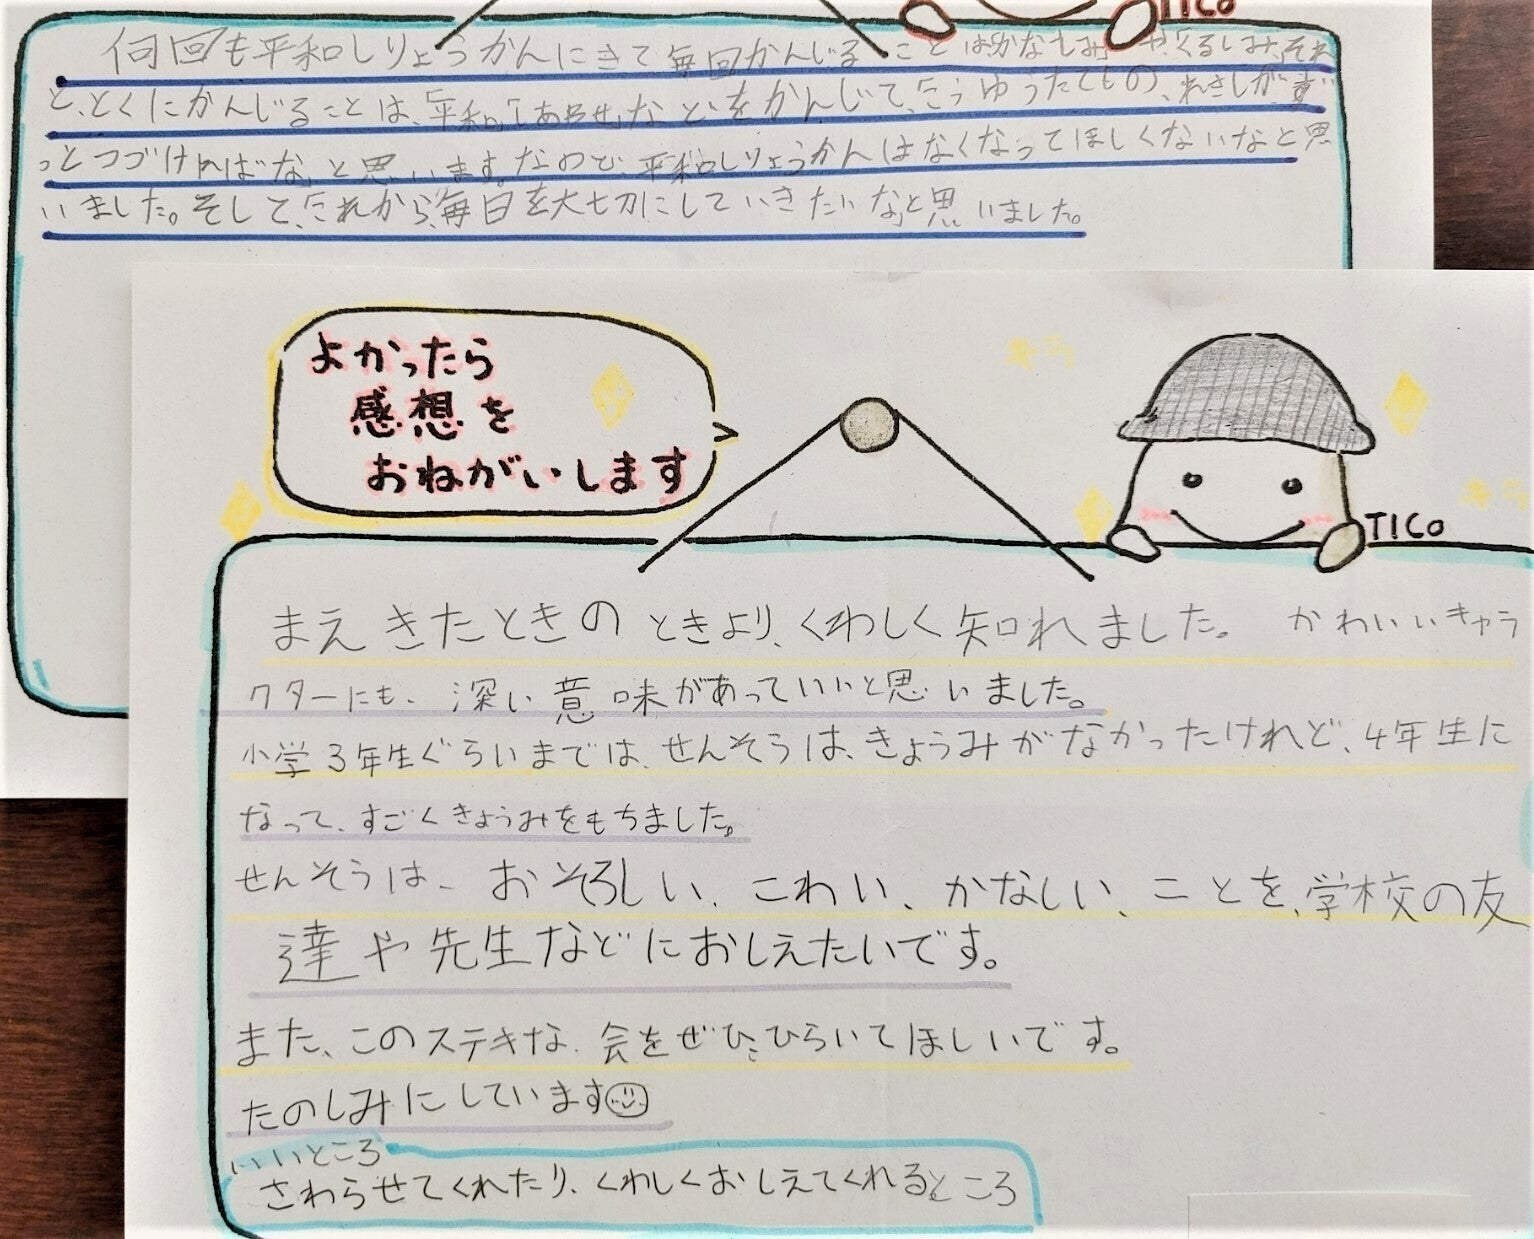 TICo
何回も平和しりょうかんにきて毎回かんじることはかなしみやくるしみ、それ
と、とくにかんじることは、「平和」「しあわせ」などをかんじて、こうゆうたてもの、れきしがず
っとつづければな、と思います。なので、平和しりょうかんはなくなってほしくないなと思
いました。そして、これから、毎日を大切にしていきたいなと思いました。
よかったら
感想を
おねがいします
キラ
キラ
TICo
まえきたときのときより、くわしく知れました。かわいいキャラ
クターにも、深い意味があっていいと思いました。
小学3年生ぐらいまでは、せんそうは、きょうみがなかったけれど、4年生に
なって、すごくきょうみをもちました。
せんそうは、おそろしい、こわい、かなしい、ことを、学校の友
達や先生などにおしえたいです。
また、このステキな会をぜひ、ひらいてほしいです。
たのしみにしています☺
いいところ
さわらせてくれたり、くわしくおしえてくれるところ